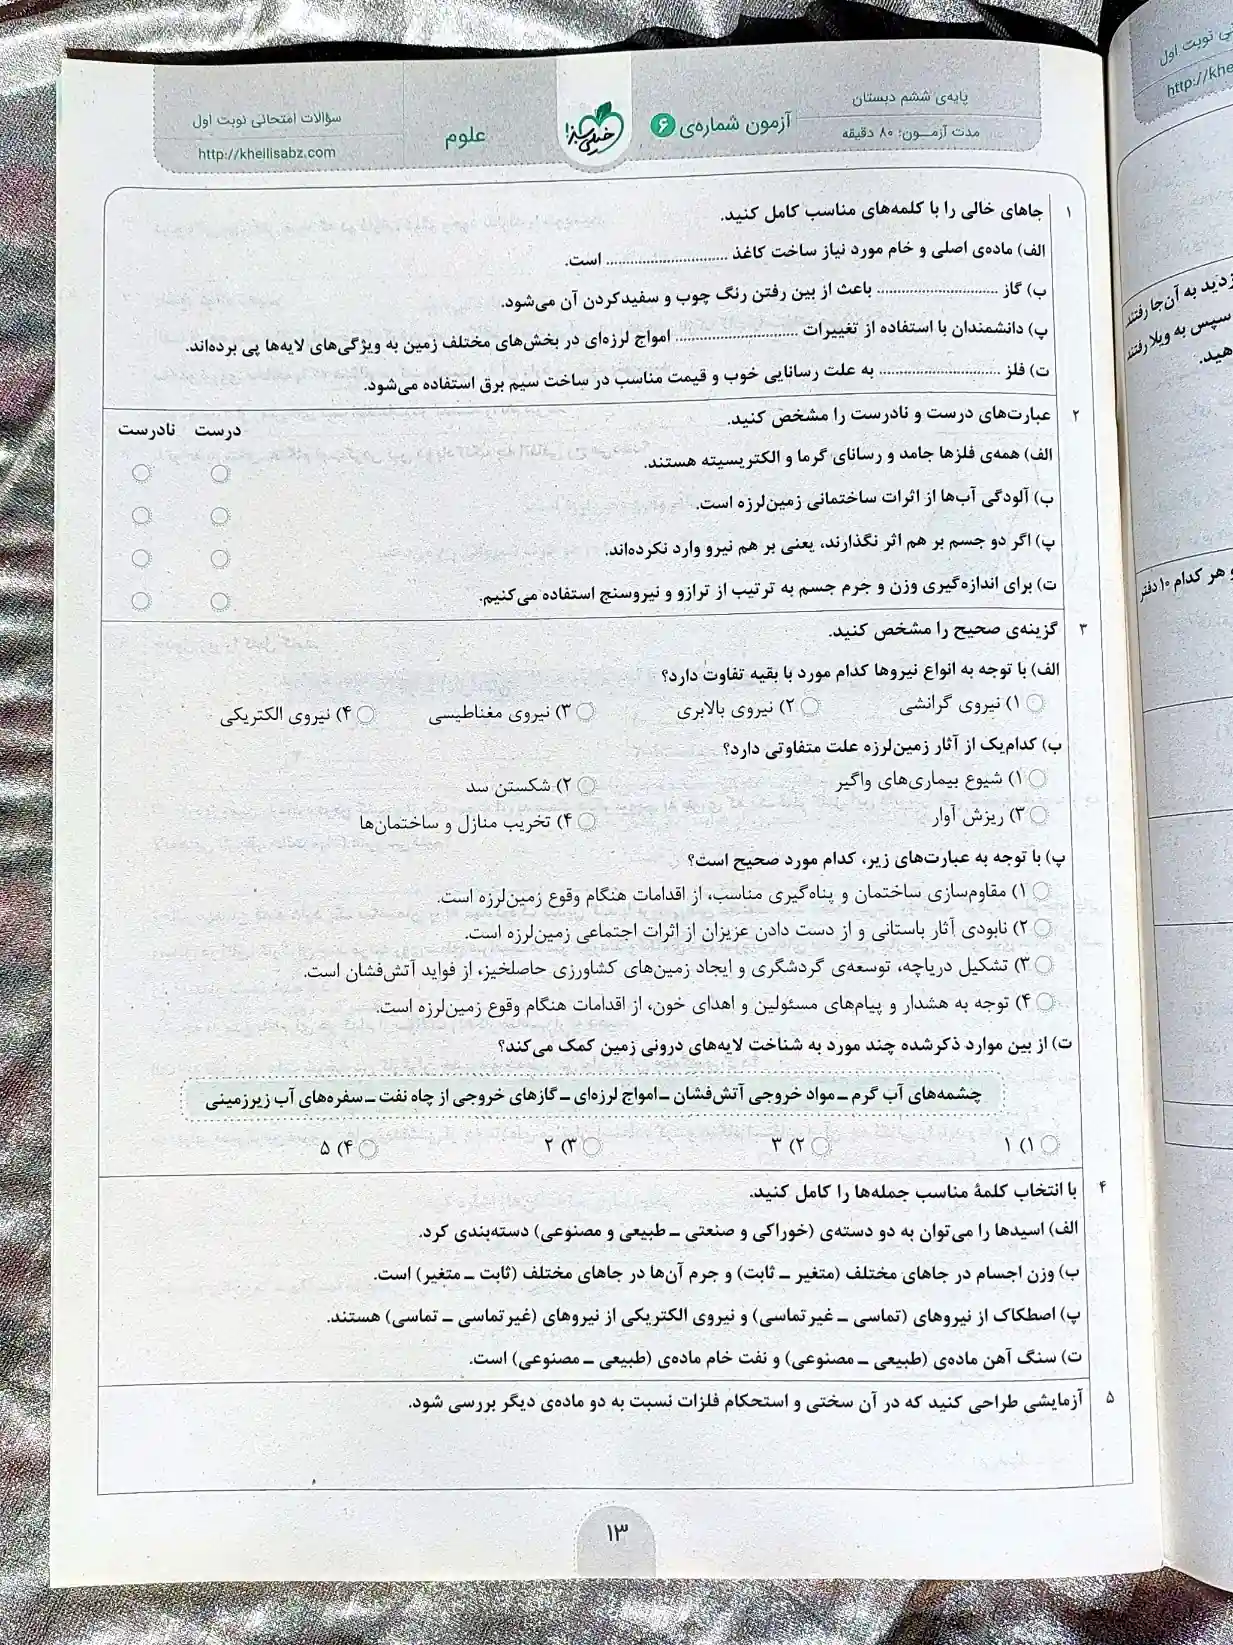 پایه‌ی ششم دبستان
مدت آزمــون: ۸۰ دقیقه
آزمون شماره‌ی ۶
خیلی سبز!
علوم
سؤالات امتحانی نوبت اول
http://kheilisabz.com
۱ جاهای خالی را با کلمه‌های مناسب کامل کنید.
الف) ماده‌ی اصلی و خام مورد نیاز ساخت کاغذ .............................. است.
ب) گاز .............................. باعث از بین رفتن رنگ چوب و سفیدکردن آن می‌شود.
پ) دانشمندان با استفاده از تغییرات .............................. امواج لرزه‌ای در بخش‌های مختلف زمین به ویژگی‌های لایه‌ها پی برده‌اند.
ت) فلز .............................. به علت رسانایی خوب و قیمت مناسب در ساخت سیم برق استفاده می‌شود.
۲ عبارت‌های درست و نادرست را مشخص کنید.
درست نادرست
الف) همه‌ی فلزها جامد و رسانای گرما و الکتریسیته هستند.
ب) آلودگی آب‌ها از اثرات ساختمانی زمین‌لرزه است.
پ) اگر دو جسم بر هم اثر نگذارند، یعنی بر هم نیرو وارد نکرده‌اند.
ت) برای اندازه‌گیری وزن و جرم جسم به ترتیب از ترازو و نیروسنج استفاده می‌کنیم.
۳ گزینه‌ی صحیح را مشخص کنید.
الف) با توجه به انواع نیروها کدام مورد با بقیه تفاوت دارد؟
۱) نیروی گرانشی ۲) نیروی بالابری ۳) نیروی مغناطیسی ۴) نیروی الکتریکی
ب) کدام‌یک از آثار زمین‌لرزه علت متفاوتی دارد؟
۱) شیوع بیماری‌های واگیر ۲) شکستن سد
۳) ریزش آوار ۴) تخریب منازل و ساختمان‌ها
پ) با توجه به عبارت‌های زیر، کدام مورد صحیح است؟
۱) مقاوم‌سازی ساختمان و پناه‌گیری مناسب، از اقدامات هنگام وقوع زمین‌لرزه است.
۲) نابودی آثار باستانی و از دست دادن عزیزان از اثرات اجتماعی زمین‌لرزه است.
۳) تشکیل دریاچه، توسعه‌ی گردشگری و ایجاد زمین‌های کشاورزی حاصلخیز، از فواید آتش‌فشان است.
۴) توجه به هشدار و پیام‌های مسئولین و اهدای خون، از اقدامات هنگام وقوع زمین‌لرزه است.
ت) از بین موارد ذکرشده چند مورد به شناخت لایه‌های درونی زمین کمک می‌کند؟
چشمه‌های آب گرم ـ مواد خروجی آتش‌فشان ـ امواج لرزه‌ای ـ گازهای خروجی از چاه نفت ـ سفره‌های آب زیرزمینی
۱) ۱ ۲) ۳ ۳) ۲ ۴) ۵
۴ با انتخاب کلمهٔ مناسب جمله‌ها را کامل کنید.
الف) اسیدها را می‌توان به دو دسته‌ی (خوراکی و صنعتی ـ طبیعی و مصنوعی) دسته‌بندی کرد.
ب) وزن اجسام در جاهای مختلف (متغیر ـ ثابت) و جرم آن‌ها در جاهای مختلف (ثابت ـ متغیر) است.
پ) اصطکاک از نیروهای (تماسی ـ غیرتماسی) و نیروی الکتریکی از نیروهای (غیرتماسی ـ تماسی) هستند.
ت) سنگ آهن ماده‌ی (طبیعی ـ مصنوعی) و نفت خام ماده‌ی (طبیعی ـ مصنوعی) است.
۵ آزمایشی طراحی کنید که در آن سختی و استحکام فلزات نسبت به دو ماده‌ی دیگر بررسی شود.
۱۳
نوبت اول
http://khe
به آن‌جا رفتند
سپس به ویلا رفتند
هر کدام ۱۰ دفتر